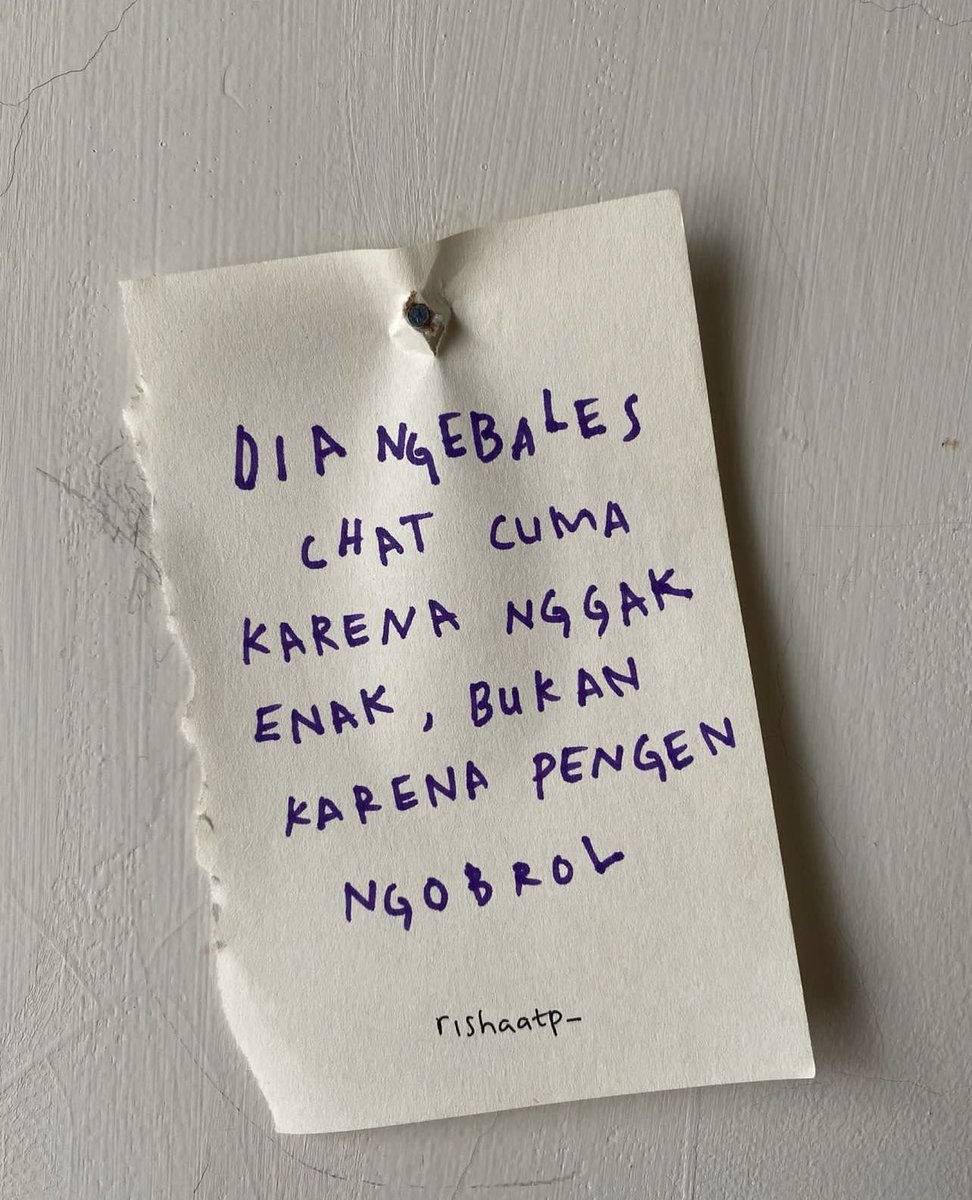 DIA NGEBALES
CHAT CUMA
KARENA NGGAK
ENAK, BUKAN
KARENA PENGEN
NGOBROL
rishaatp_